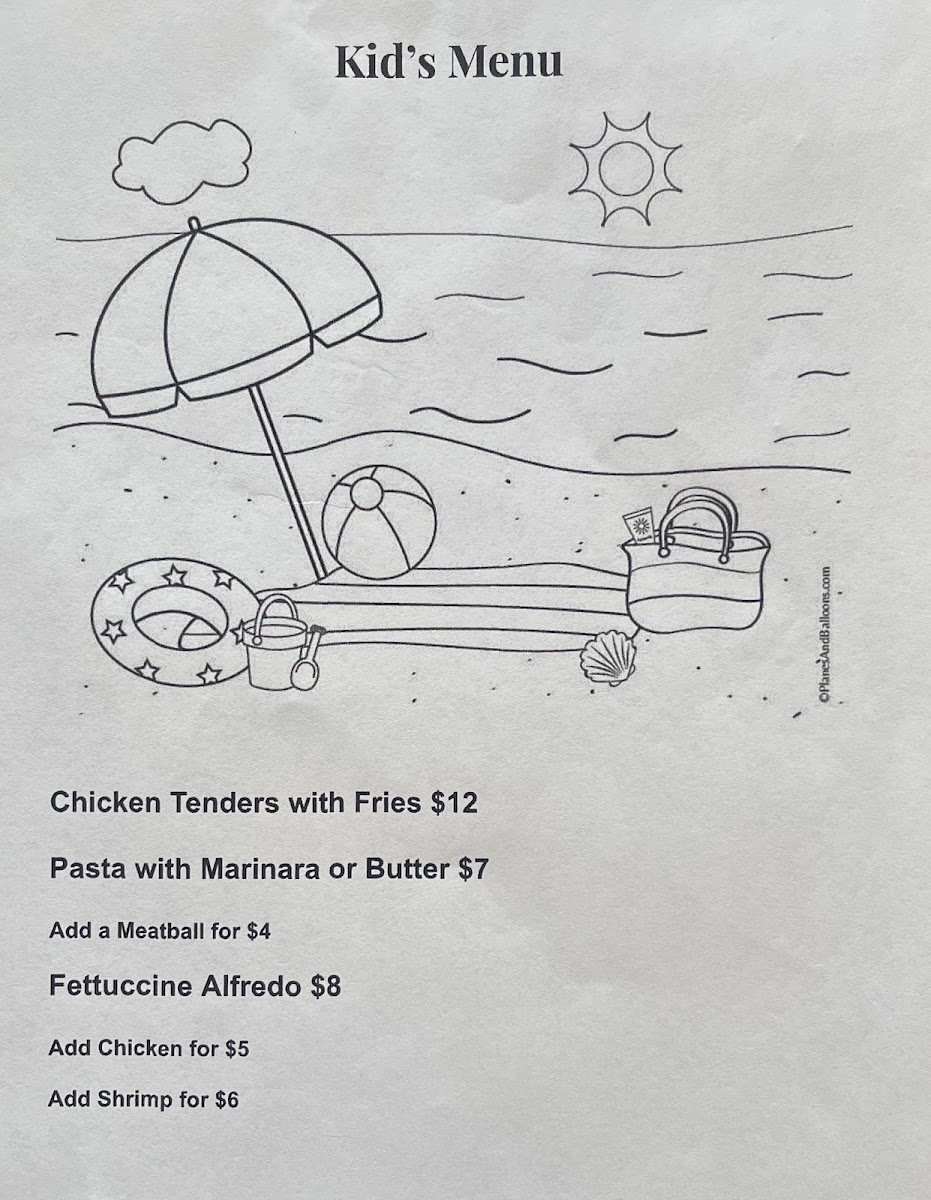 Kid's Menu
©PlanesAndBalloons.com
Chicken Tenders with Fries $12
Pasta with Marinara or Butter $7
Add a Meatball for $4
Fettuccine Alfredo $8
Add Chicken for $5
Add Shrimp for $6